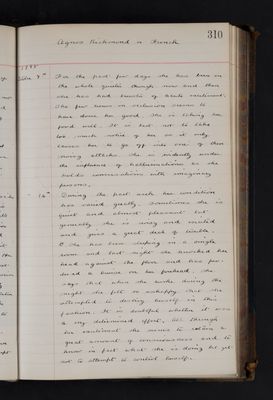 310
Agnes Richmond or French
1895
7th For the past few days she has been on
the whole quieter though now and then
she has had bursts of acute excitement.
The few hours in seclusion seems to
have done her good. She is taking her
food well. It is best not to take
too much notice of her as it only
causes her to go off into one of these
noisy attacks. She is evidently under
the influence of hallucinations as she
holds conversations with imaginary
persons.
14th During the past week her condition
has varied greatly. Sometimes she is
quiet and almost pleasant but
generally she is noisy and excited
and gives a great deal of trouble.
She has been sleeping in a single
room and last night she knocked her
head against the floor and has
a bruise on her forehead. She
says that when she woke during the
night she felt so unhappy that she
attempted to destroy herself in this
fashion. It is doubtful whether it was
a very determined effort. All through
her excitement she seems to retain a
great amount of consciousness and to
know in fact what she is doing but yet
not to attempt to control herself.